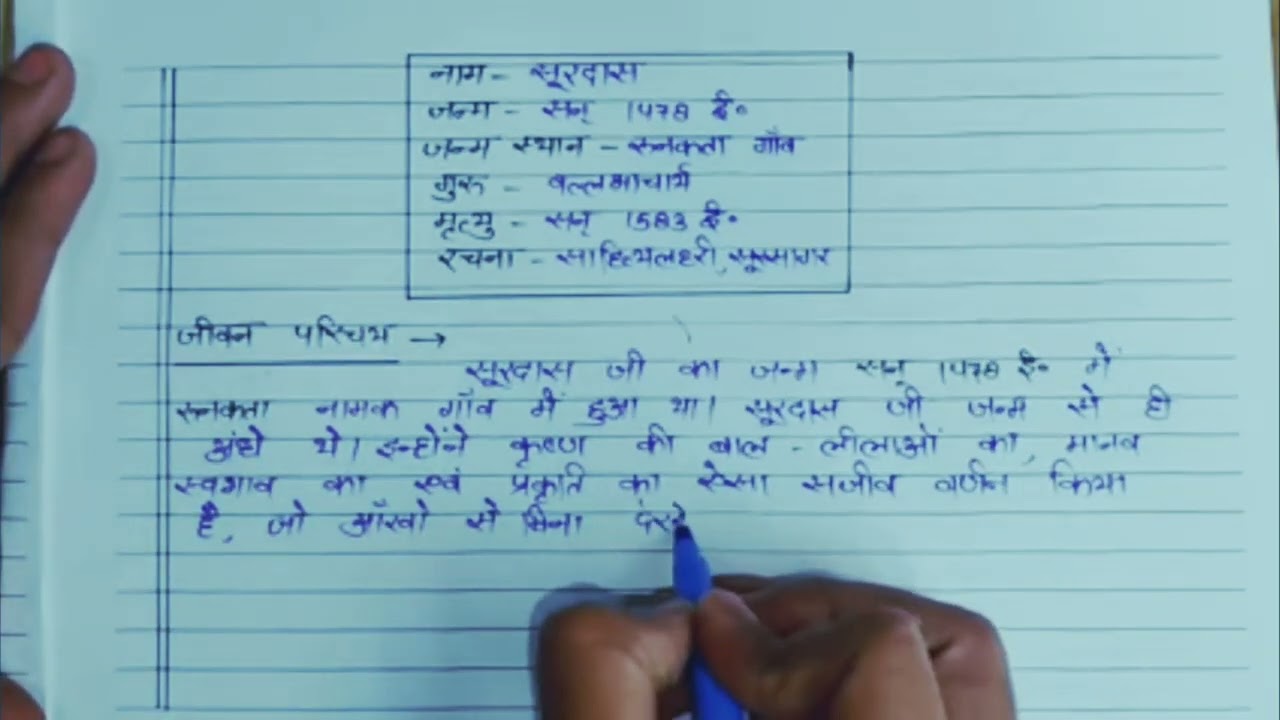 नाम - सूरदास
जन्म - सन् 1478 ई०
जन्म स्थान - रुनकता गाँव
गुरु - वल्लभाचार्य
मृत्यु - सन् 1583 ई०
रचना - साहित्यलहरी, सूरसागर
जीवन परिचय →
सूरदास जी का जन्म सन् 1478 ई० में
रुनकता नामक गाँव में हुआ था। सूरदास जी जन्म से ही
अंधे थे। इन्होंने कृष्ण की बाल - लीलाओं का, मानव
स्वभाव का एवं प्रकृति का ऐसा सजीव वर्णन किया
है, जो आँखो से बिना देखे